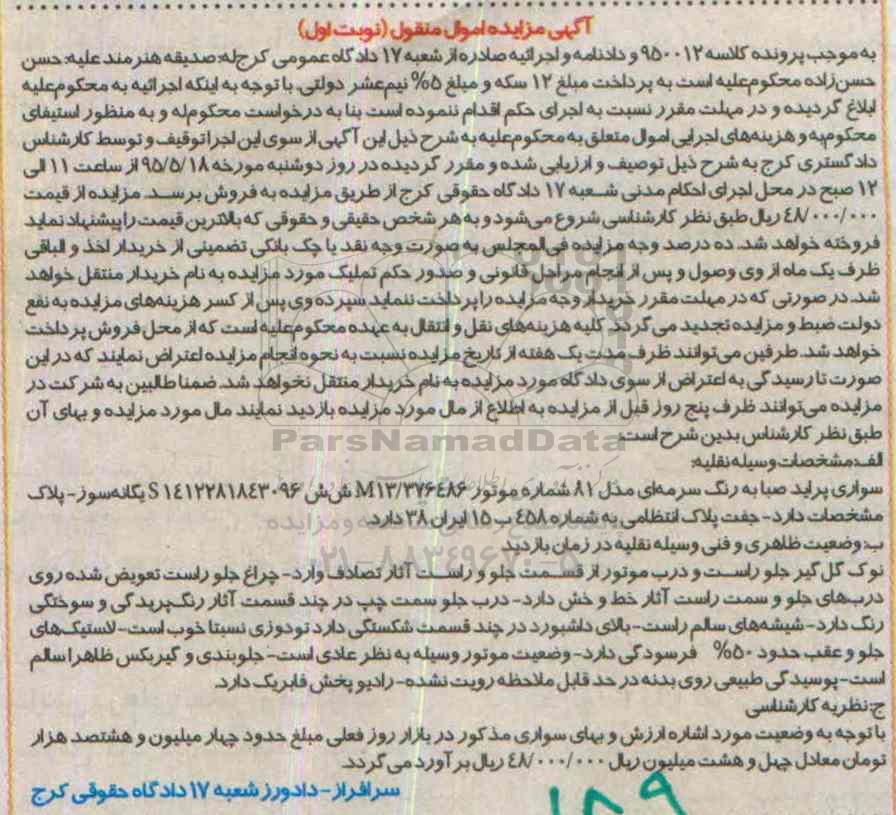 آگهی مزایده اموال منقول (نوبت اول)
به موجب پرونده کلاسه ۹۵۰۰۱۲ و دادنامه و اجرائیه صادره از شعبه ۱۷ دادگاه عمومی کرج له: صدیقه هنرمند علیه: حسن
حسن‌زاده محکوم‌علیه است به پرداخت مبلغ ۱۲ سکه و مبلغ ۵% نیم‌عشر دولتی. با توجه به اینکه اجرائیه به محکوم‌علیه
ابلاغ گردیده و در مهلت مقرر نسبت به اجرای حکم اقدام ننموده است بنا به درخواست محکوم‌له و به منظور استیفای
محکوم‌به و هزینه‌های اجرایی اموال متعلق به محکوم‌علیه به شرح ذیل این آگهی از سوی این اجرا توقیف و توسط کارشناس
دادگستری کرج به شرح ذیل توصیف و ارزیابی شده و مقرر گردیده در روز دوشنبه مورخه ۹۵/۵/۱۸ از ساعت ۱۱ الی
۱۲ صبح در محل اجرای احکام مدنی شعبه ۱۷ دادگاه حقوقی کرج از طریق مزایده به فروش برسد. مزایده از قیمت
۴۸/۰۰۰/۰۰۰ ریال طبق نظر کارشناسی شروع می‌شود و به هر شخص حقیقی و حقوقی که بالاترین قیمت را پیشنهاد نماید
فروخته خواهد شد. ده درصد وجه مزایده فی‌المجلس به صورت وجه نقد یا چک بانکی تضمینی از خریدار اخذ و الباقی
ظرف یک ماه از وی وصول و پس از انجام مراحل قانونی و صدور حکم تملیک مورد مزایده به نام خریدار منتقل خواهد
شد. در صورتی که در مهلت مقرر خریدار وجه مزایده را پرداخت ننماید سپرده وی پس از کسر هزینه‌های مزایده به نفع
دولت ضبط و مزایده تجدید می گردد. کلیه هزینه‌های نقل و انتقال به عهده محکوم‌علیه است که از محل فروش پرداخت
خواهد شد. طرفین می‌توانند ظرف مدت یک هفته از تاریخ مزایده نسبت به نحوه انجام مزایده اعتراض نمایند که در این
صورت تا رسیدگی به اعتراض از سوی دادگاه مورد مزایده به نام خریدار منتقل نخواهد شد. ضمنا طالبین به شرکت در
مزایده می‌توانند ظرف پنج روز قبل از مزایده به اطلاع از مال مورد مزایده بازدید نمایند مال مورد مزایده و بهای آن
طبق نظر کارشناس بدین شرح است:
ParsNamadData
الف: مشخصات وسیله نقلیه:
سواری پراید صبا به رنگ سرمه‌ای مدل ۸۱ شماره موتور M۱۳/۳۷۶۴۸۶ ش ش S ۱۴۱۲۲۸۱۸۴۳۰۹۶ یگانه‌سوز- پلاک
مشخصات دارد- جفت پلاک انتظامی به شماره ۴۵۸ ب ۱۵ ایران ۳۸ دارد.
ب: وضعیت ظاهری و فنی وسیله نقلیه در زمان بازدید
۰۲۱-۸۸۳۴۹۶۷۰-۵
نوک گل گیر جلو راست و درب موتور از قسمت جلو و راست آثار تصادف وارد- چراغ جلو راست تعویض شده روی
درب‌های جلو و سمت راست آثار خط و خش دارد- درب جلو سمت چپ در چند قسمت آثار رنگ‌پریدگی و سوختگی
رنگ دارد- شیشه‌های سالم راست- بالای داشبورد در چند قسمت شکستگی دارد تودوزی نسبتا خوب است- لاستیک‌های
جلو و عقب حدود ۵۰% فرسودگی دارد- وضعیت موتور وسیله به نظر عادی است- جلوبندی و گیربکس ظاهرا سالم
است- پوسیدگی طبیعی روی بدنه در حد قابل ملاحظه رویت نشده- رادیو پخش فابریک دارد.
ج: نظریه کارشناسی
با توجه به وضعیت مورد اشاره ارزش و بهای سواری مذکور در بازار روز فعلی مبلغ حدود چهار میلیون و هشتصد هزار
تومان معادل چهل و هشت میلیون ریال ۴۸/۰۰۰/۰۰۰ ریال برآورد می گردد.
سرافراز- دادورز شعبه ۱۷ دادگاه حقوقی کرج
۱۸۹